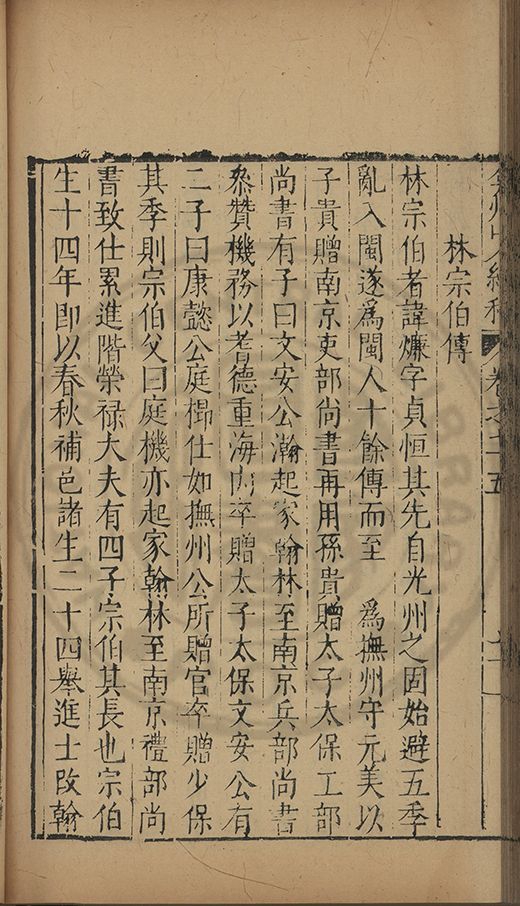 弇州山人續稿 卷之七十五
林宗伯傳
林宗伯者諱燫字貞恒其先自光州之固始避五季
亂入閩遂爲閩人十餘傳而至 爲撫州守元美以
子貴贈南京吏部尚書再用孫貴贈太子太保工部
尚書有子曰文安公瀚起家翰林至南京兵部尚書
叅贊機務以耆德重海内卒贈太子太保文安公有
二子曰康懿公庭㭿仕如撫州公所贈官卒贈少保
其季則宗伯父曰庭機亦起家翰林至南京禮部尚
書致仕累進階榮禄大夫有四子宗伯其長也宗伯
生十四年即以春秋補邑諸生二十四舉進士改翰